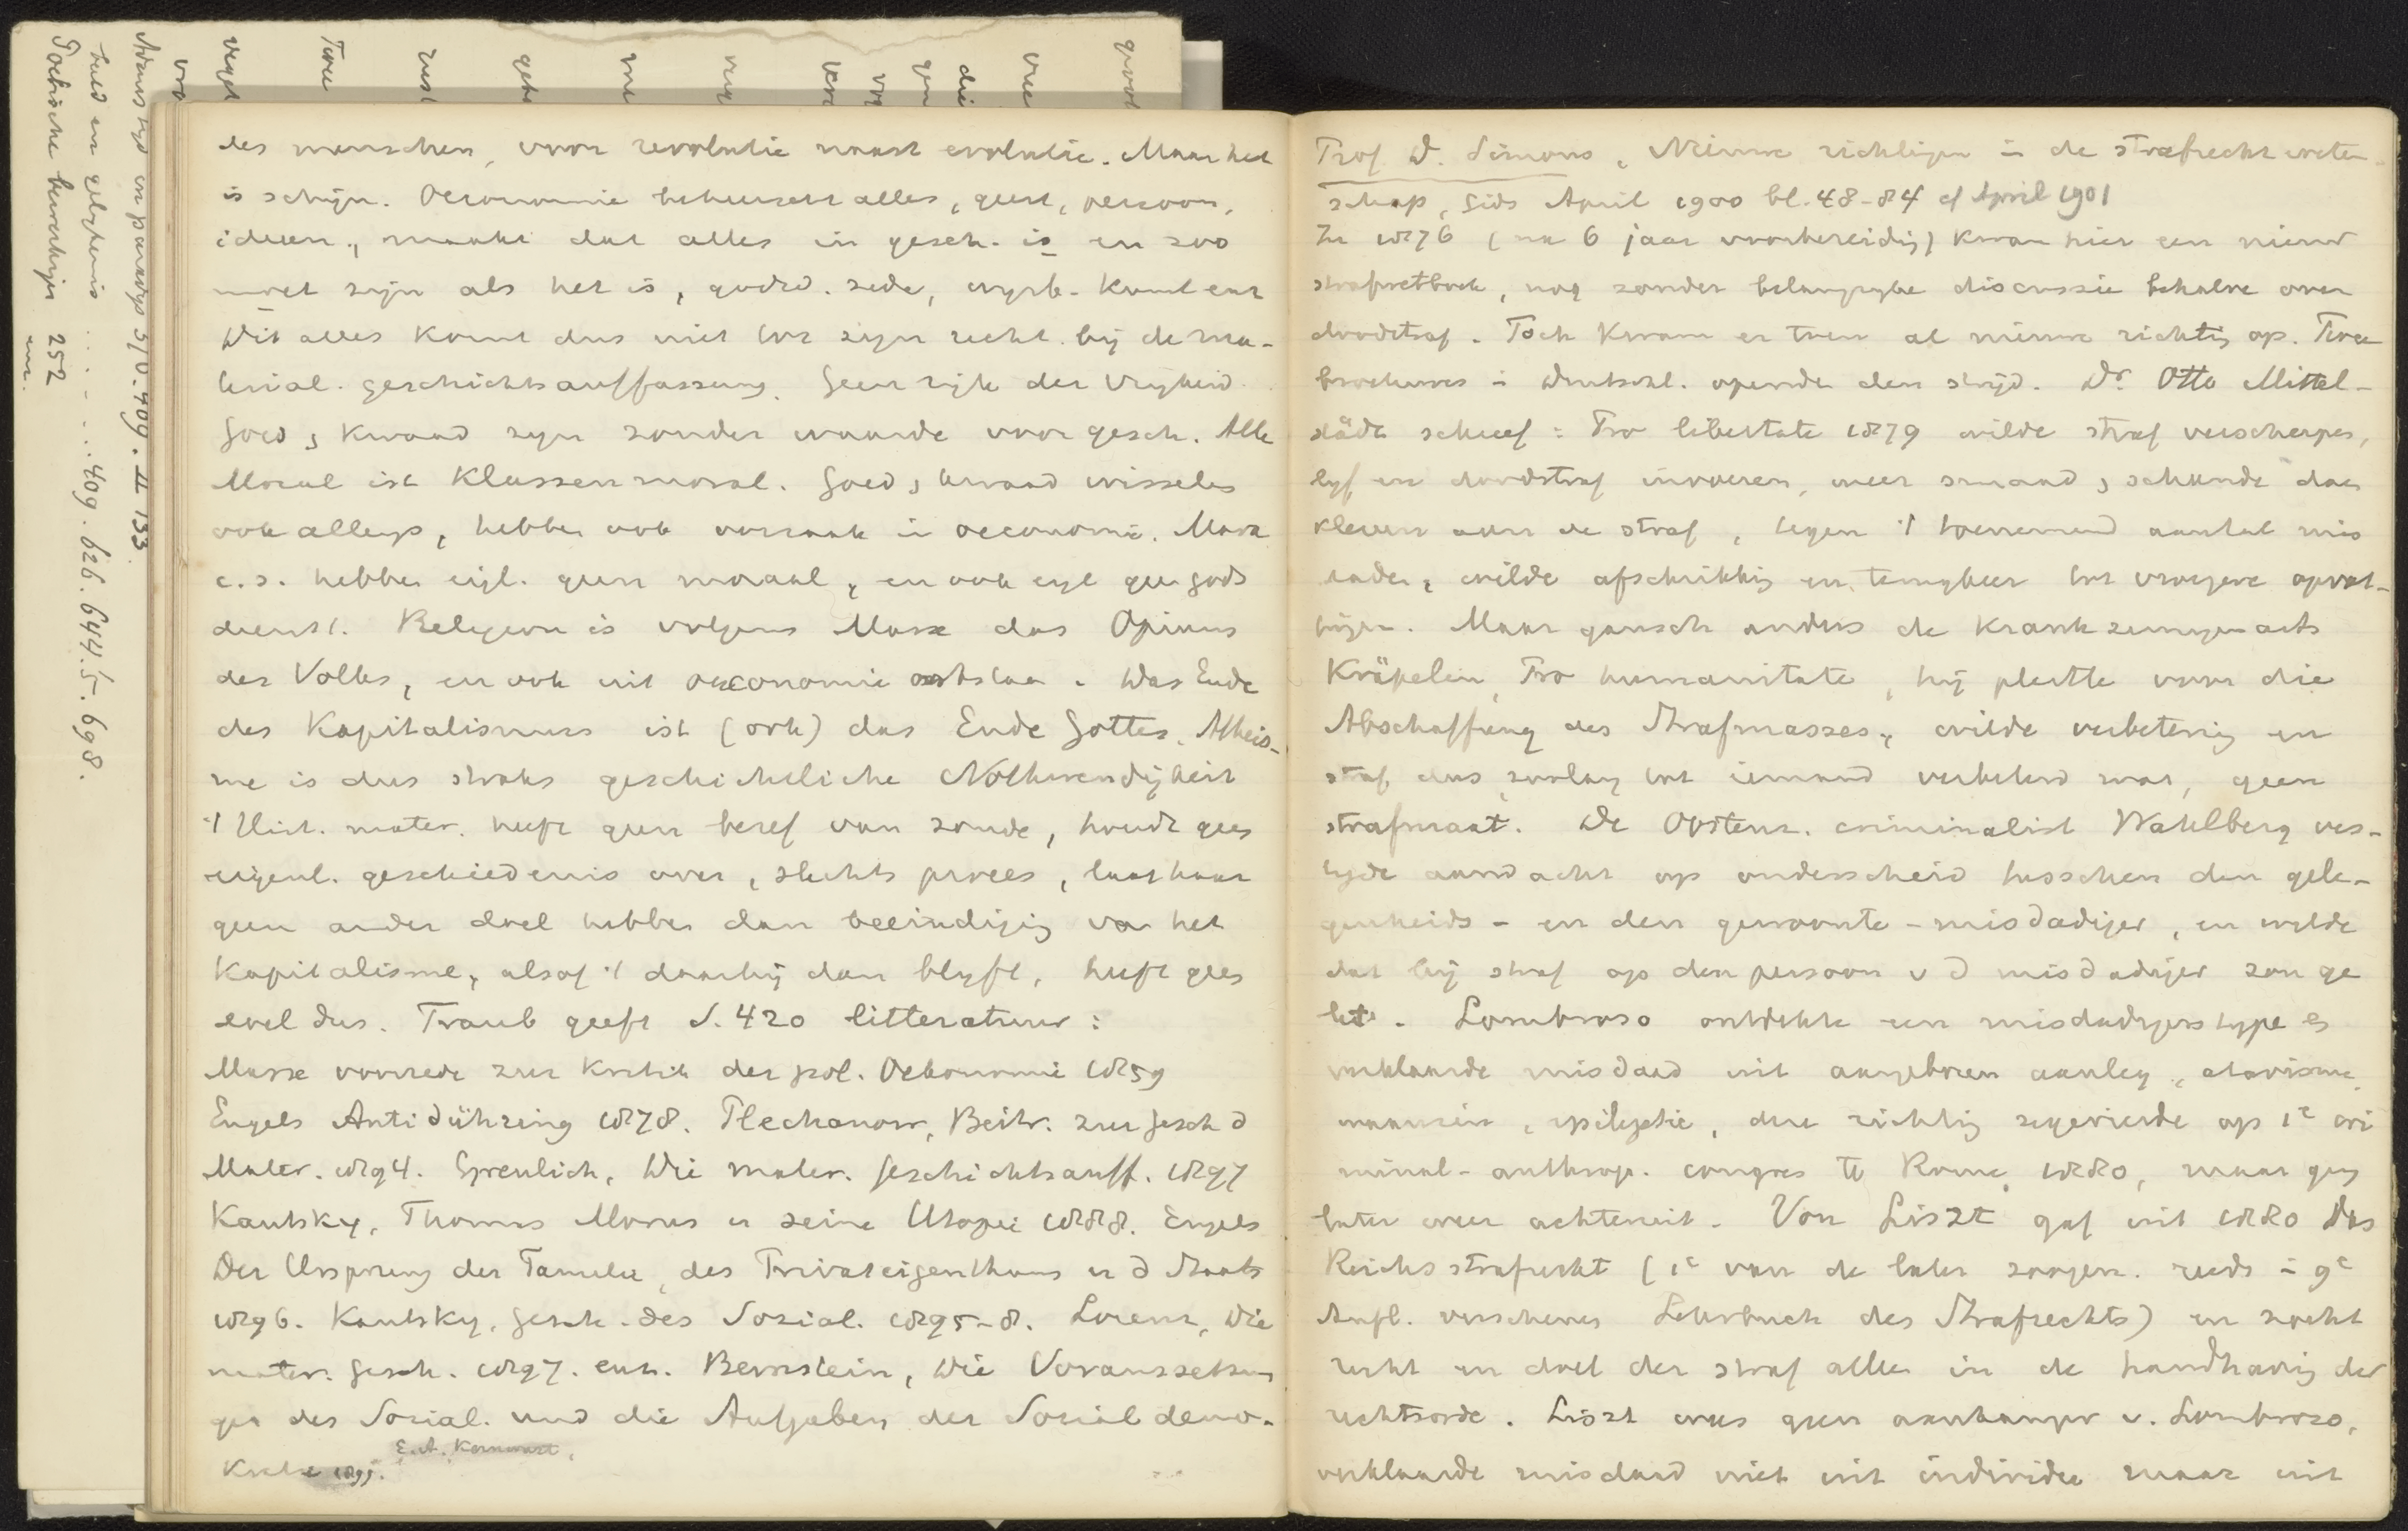 des menschen, voor revolutie naast evolutie. Maar het
is schijn. Oeconomie beheerscht alles, geest, persoon,
ideeen, maakt dat alles in gesch. is en zoo
moet zijn als het is, godsd. zede, wysb. kunst enz
Dit alles komt dus niet tot zijn recht bij de ma-
terial. geschichtsauffassung. Geen rijk der vrijheid.
Goed, kwaad zyn zonder waarde voor gesch. Alle
Moral ist Klassenmoral. Goed, kwaad wisselen
ook allengs, hebben ook oorzaak in oeconomie. Marx
c.s. hebben eigl. geen moraal, en ook eigl geen gods
dienst. Religion is volgens Marx das Opium
des Volkes, en ook uit oeconomie ontstaan. Das Ende
des Kapitalismus ist (ook) das Ende Gottes. Atheis-
me is dus straks geschichtliche Nothwendigkeit
't Hist. mater. heeft geen besef van zonde, houdt geen
eigenl. geschiedenis over, slechts proces, laat haar
geen ander doel hebben dan beeindiging van het
Kapitalisme, alsof 't daarbij dan blyft, heeft geen
doel dus. Traub geeft S. 420 litteratuur:
Marx voorrede zur Kritik der pol. Oekonomie 1859
Engels Antidühring 1878. Plechanow, Beitr. zur Gesch d
Mater. 1894. Greulich, Die mater. Geschichtsauff. 1897
Kautsky, Thomas Morus u seine Utopie 1888. Engels
Der Ursprung der Familie, des Privateigenthums u d Staats
1896. Kautsky, Gesch. des Sozial. 1895-8. Lorenz, Die
mater. Gesch. 1897. enz. Bernstein, Die Voraussetzun
gen des Sozial. und die Aufgaben der Social demo-
kratie 1899.
Prof D. Simons, Nieuwe richtingen in de strafrechtweten-
schap, Gids April 1900 bl. 48-84 cf April 1901
In 1876 (na 6 jaar voorbereiding) kwam hier een nieuw
strafwetboek, nog zonder belangrijke discussie behalve over
doodstraf. Toch kwam er toen al nieuwe richting op. Twee
brochures in Duitschl. openden den strijd. Dr Otto Mittel-
städt schreef: Pro libertate 1879 wilde straf verscherpen,
lyf en doodstraf invoeren, weer smaad, schande doen
kleven aan de straf, tegen 't toenemend aantal mis
daden, wilde afschrikking en terugkeer tot vroegere opvat-
tingen. Maar gansch anders de krankzinnigenarts
Kräpelin, Pro humanitate, hij pleitte voor die
Abschaffung des Strafmasses, wilde verbetering en
straf dus zoolang tot iemand verbeterd was, geen
strafmaat. De Oostenr. criminalist Wahlberg ves-
tigde aandacht op onderscheid tusschen den gele-
genheids- en den gewoonte-misdadiger, en wilde
dat bij straf op den persoon v d misdadiger zou ge
let. Lombroso ontdekte een misdadigerstype en
verklaarde misdaad uit aangeboren aanleg, atavisme,
waanzin, epilepsie, deze richting zegevierde op 1e cri
minal-anthrop. congres te Rome, 1880, maar ging
later weer achteruit. Von Liszt gaf uit 1880 Das
Reichsstrafrecht (1e van de later zoogen. reeds in 9e
Aufl. verschenen Lehrbuch des Strafrechts) en zocht
recht en doel der straf alleen in de handhaving der
rechtsorde. Liszt was geen aanhanger v. Lombroso,
verklaarde misdaad niet uit individu maar uit
Poëtische
252
409. 626. 644. 5. 698.